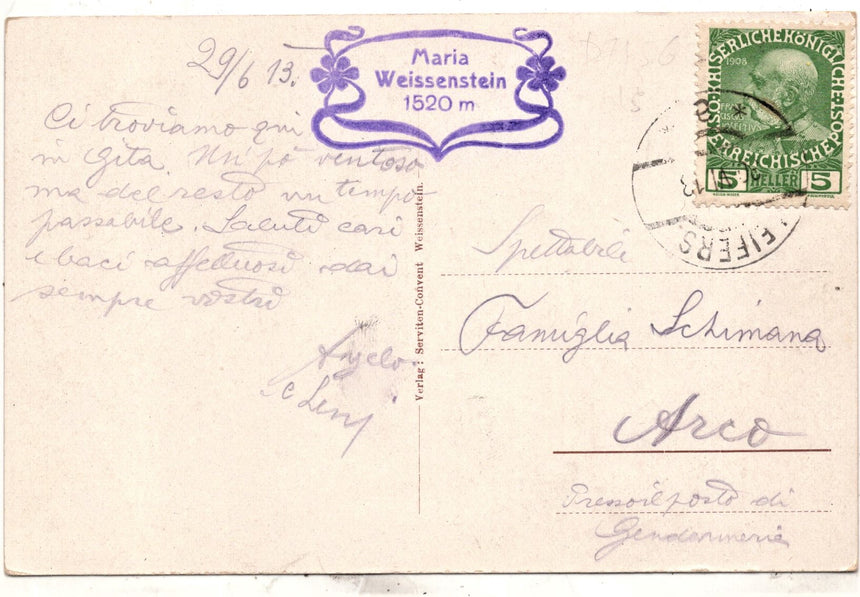 29/6 13.
Ci troviamo qui
in gita. Un pó ventoso
ma del resto un tempo
passabile. Saluti cari
e baci affettuosi dai
sempre vostri
Angelo
e
Maria
Weissenstein
1520 m
Verlag: Serviten-Convent Weissenstein.
KAISERLICHE KÖNIGLICHE ÖSTERREICHISCHE POST
1908
5 HELLER 5
LEIFERS
13
Spettabile
Famiglia Schimana
Arco
Presso il posto di
Gendarmerie